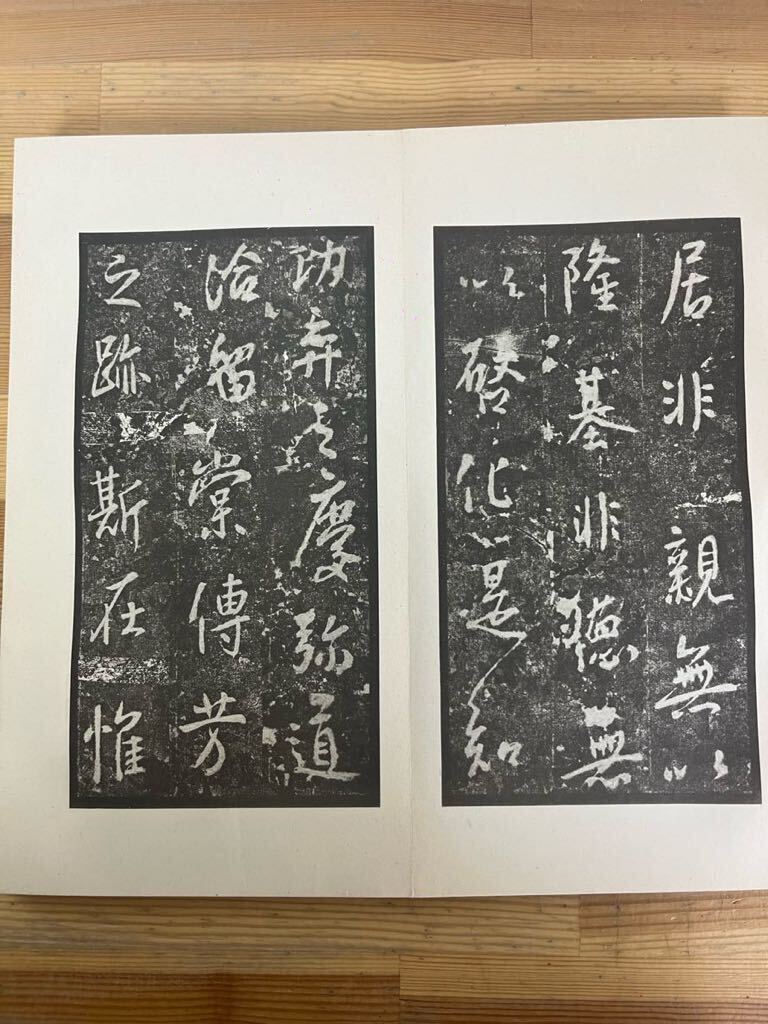 居非親無以
隆基非德無
以啓化是知
功弈之慶弥道
洽留棠傳芳
之跡斯在惟